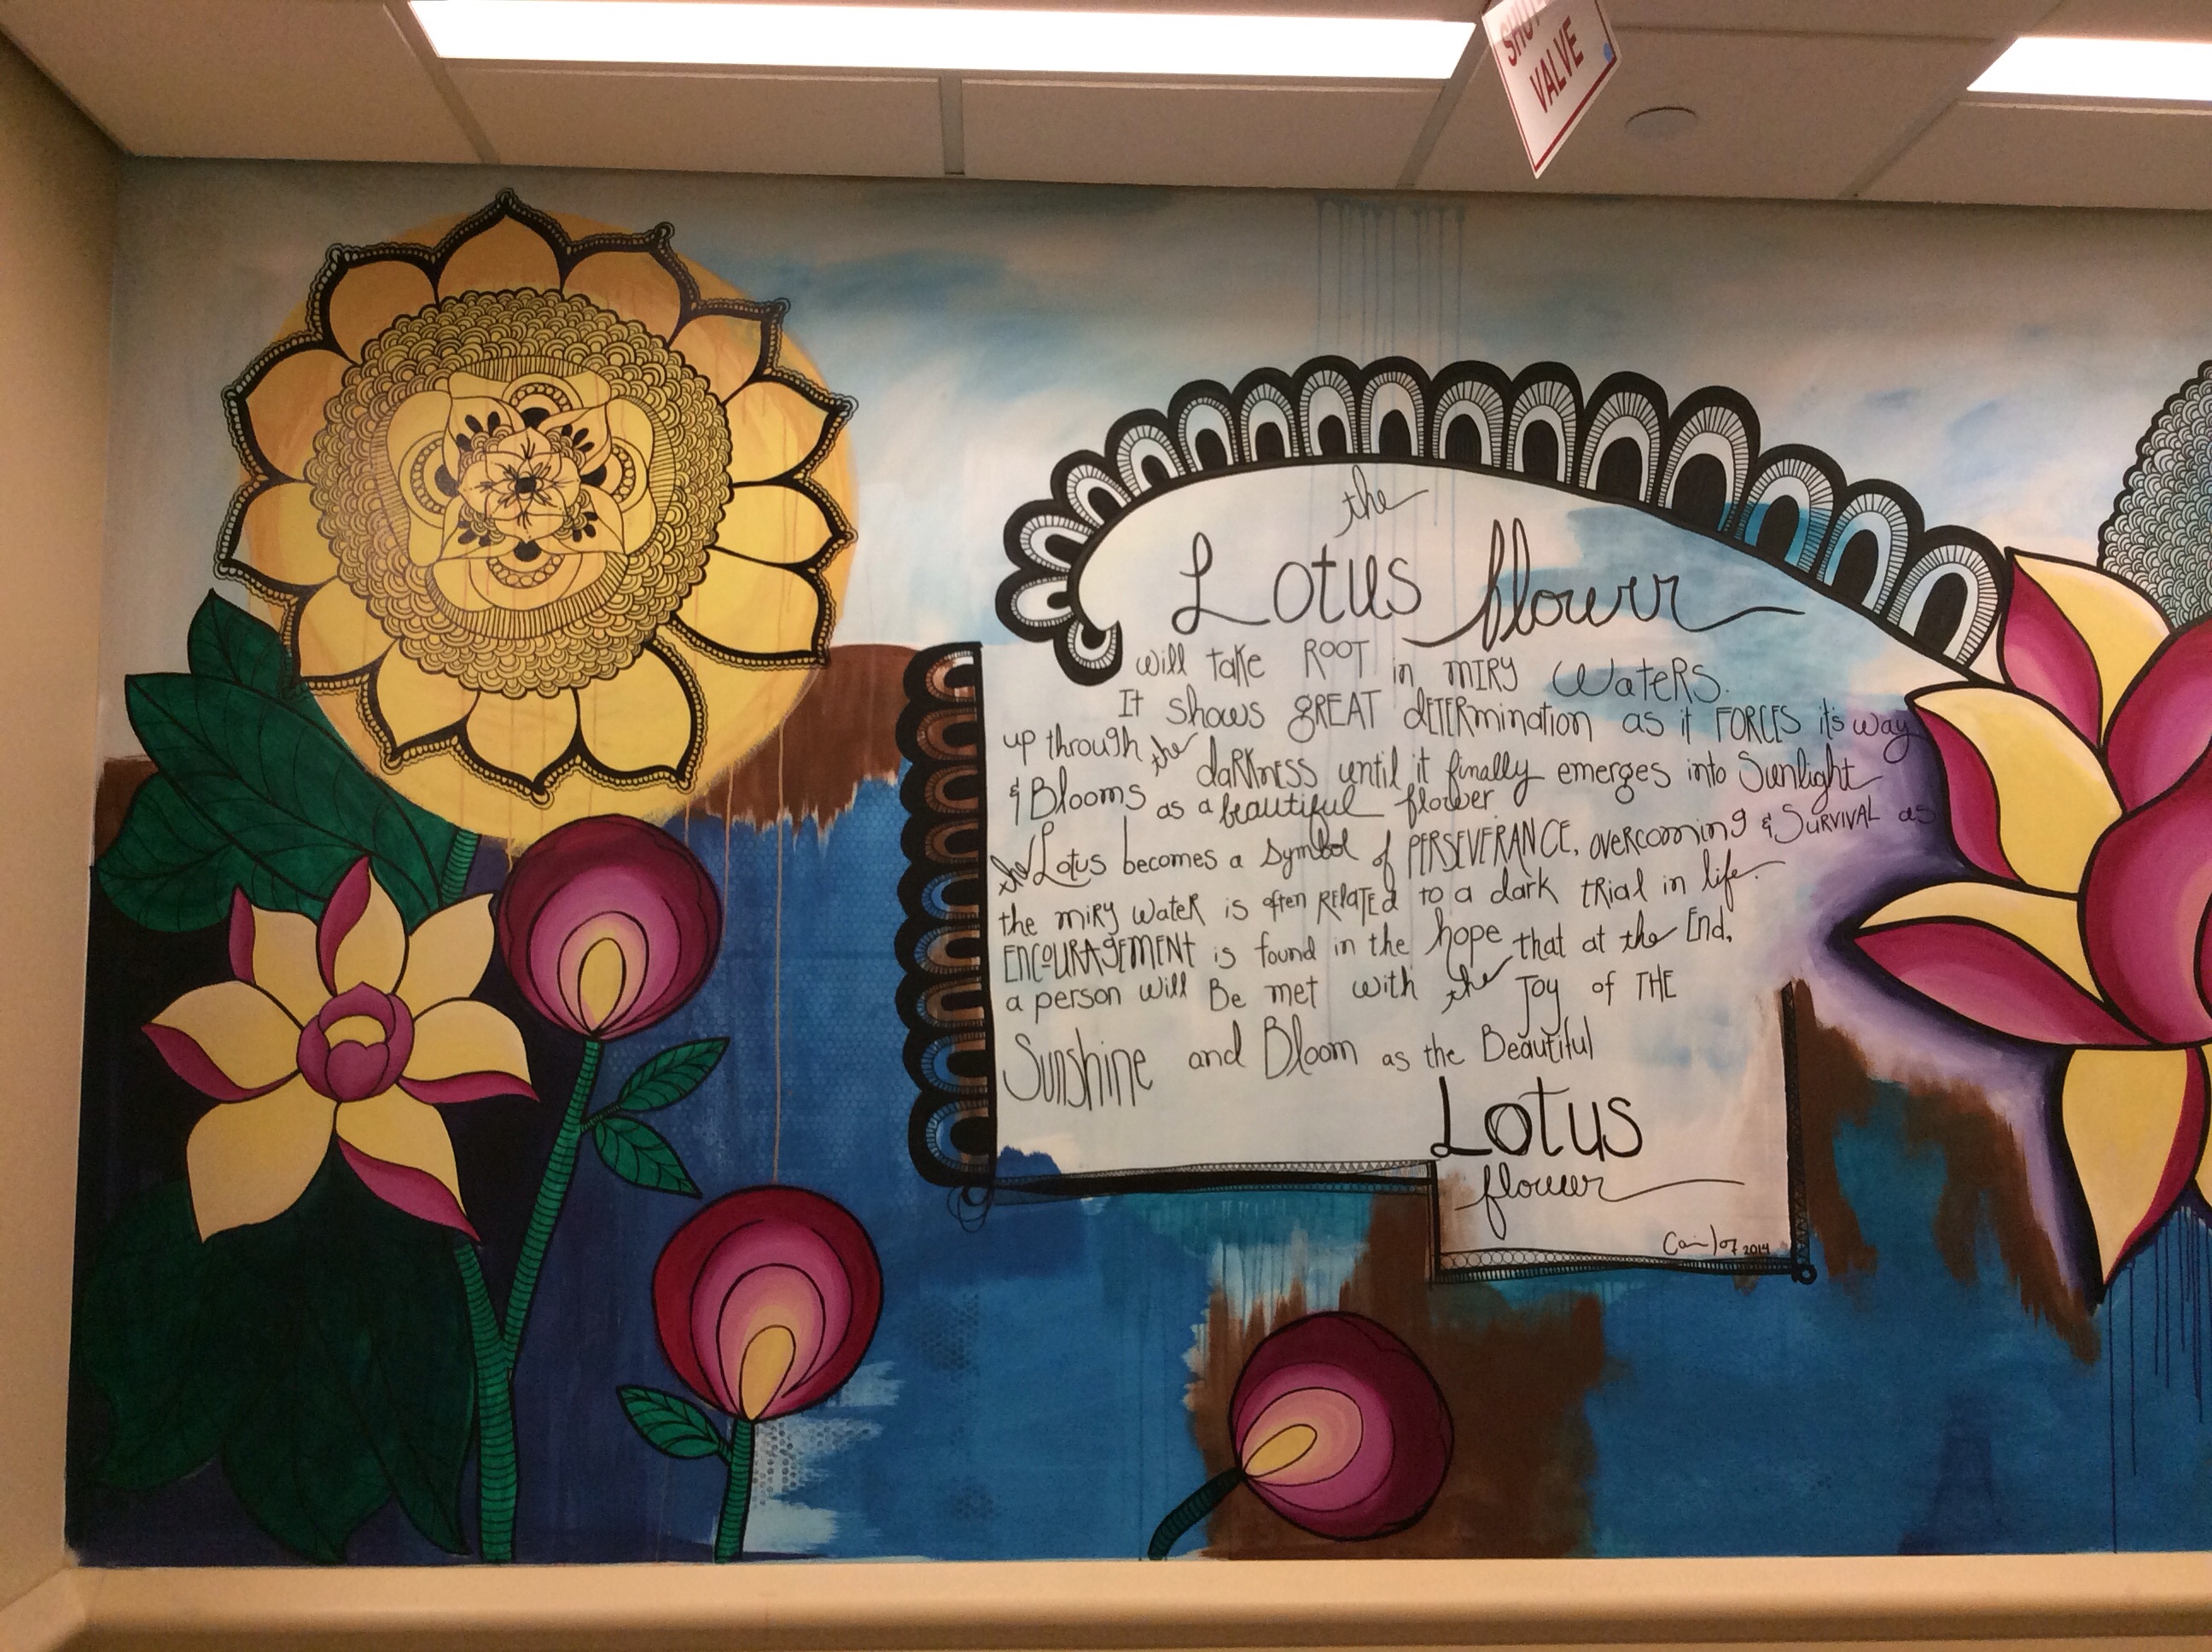 SHUT
VALVE
the
Lotus flower
will take ROOT in MIRY WateRS.
It shows gREAT dETERmination as it FORCES it's way
up through the daRKness until it finally emerges into Sunlight
& Blooms as a beautiful flower
the Lotus becomes a symbol of PERSEVERANCE, oveRcoming & SURVIVAL as
the miRy WateR is often RElatEd to a dark tRial in life.
ENCOURAGEMENT is found in the hope that at the End,
a person will Be met with the Joy of THE
Sunshine and Bloom as the Beautiful
Lotus
flower
2014